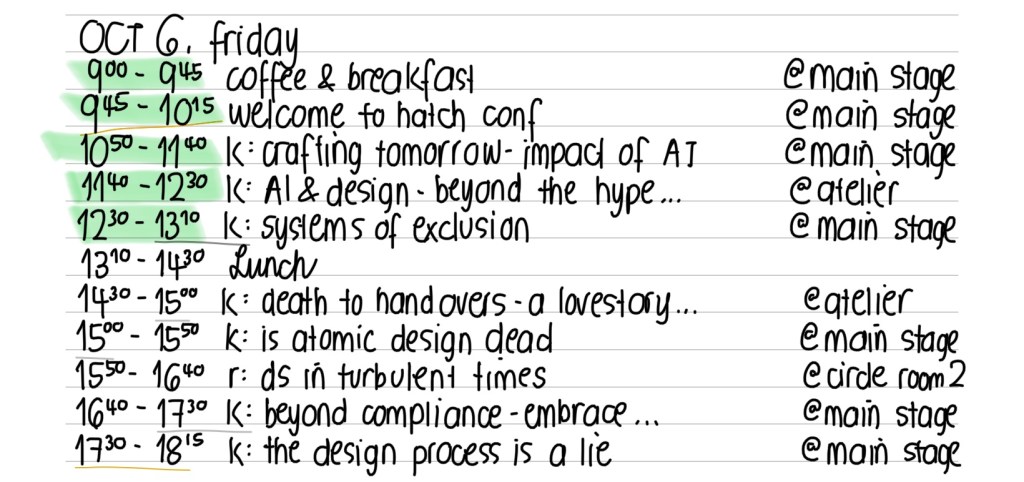 OCT 6, friday
9⁰⁰ - 9⁴⁵ coffee & breakfast @main stage
9⁴⁵ - 10¹⁵ welcome to hatch conf @main stage
10⁵⁰ - 11⁴⁰ k: crafting tomorrow - impact of AI @main stage
11⁴⁰ - 12³⁰ k: AI & design - beyond the hype... @atelier
12³⁰ - 13¹⁰ k: systems of exclusion @main stage
13¹⁰ - 14³⁰ Lunch
14³⁰ - 15⁰⁰ k: death to handovers - a lovestory... @atelier
15⁰⁰ - 15⁵⁰ k: is atomic design dead @main stage
15⁵⁰ - 16⁴⁰ r: ds in turbulent times @circle room 2
16⁴⁰ - 17³⁰ k: beyond compliance - embrace... @main stage
17³⁰ - 18¹⁵ k: the design process is a lie @main stage